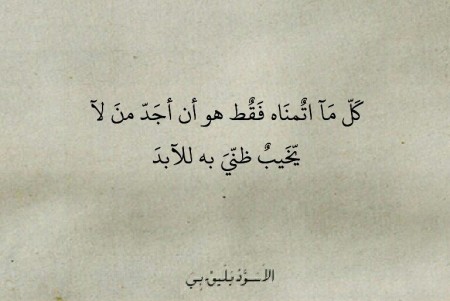 كَلّ مَآ اتٌمنَاه فَقٌط هو أن أجَدّ منَ لآ
يّخَيبٌ ظنّيَ به للآبدَ
الآســوَدَ يَليقَ بــي